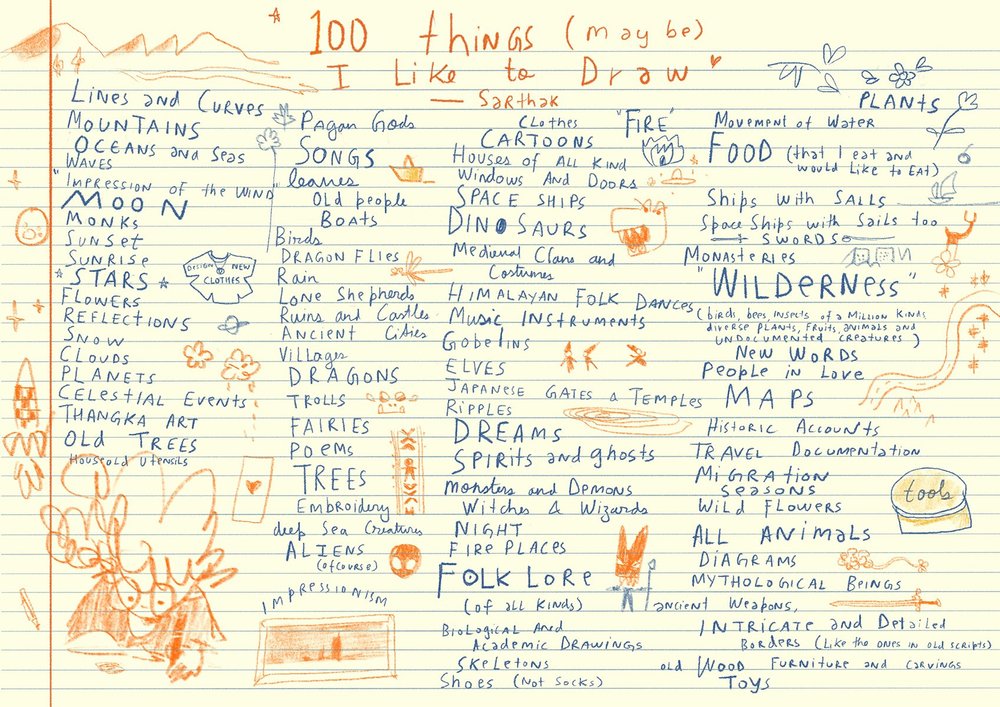 100 things (maybe)
I Like to Draw
— Sarthak
Lines and Curves
Mountains
Oceans and Seas
Waves
"Impression of the Wind"
Moon
Monks
Sunset
Sunrise
Stars
Flowers
Reflections
Snow
Clouds
Planets
Celestial Events
Thangka Art
Old Trees
Houseold Utensils
Design New
Clothes
Pagan Gods
Songs
leaves
Old people
Boats
Birds
Dragon Flies
Rain
Lone Shepherds
Ruins and Castles
Ancient Cities
Villages
Dragons
Trolls
Fairies
Poems
Trees
Embroidery
deep Sea Creatures
Aliens
(ofcourse)
Impressionism
Clothes
Cartoons
Houses of All Kind
Windows And Doors
Space Ships
Dinosaurs
Medieval Clans and
Costumes
Himalayan Folk Dances
Music Instruments
Gobelins
Elves
Japanese Gates & Temples
Ripples
Dreams
Spirits and ghosts
Monsters and Demons
Witches & Wizards
Night
Fire Places
Folk Lore
(of all Kinds)
Biological And
Academic Drawings
Skeletons
Shoes (Not Socks)
"Fire"
Plants
Movement of Water
Food (that I eat and
would Like to Eat)
Ships with Sails
Space Ships with Sails too
Swords
Monasteries
"Wilderness"
(birds, bees, insects of a Million Kinds
diverse Plants, Fruits, animals and
Undocumented Creatures)
New Words
People in Love
Maps
Historic Accounts
Travel Documentation
Migration
Seasons
Wild Flowers
tools
All Animals
Diagrams
Mythological Beings
ancient Weapons,
Intricate and Detailed
Borders (Like the ones in old scripts)
old Wood Furniture and carvings
Toys